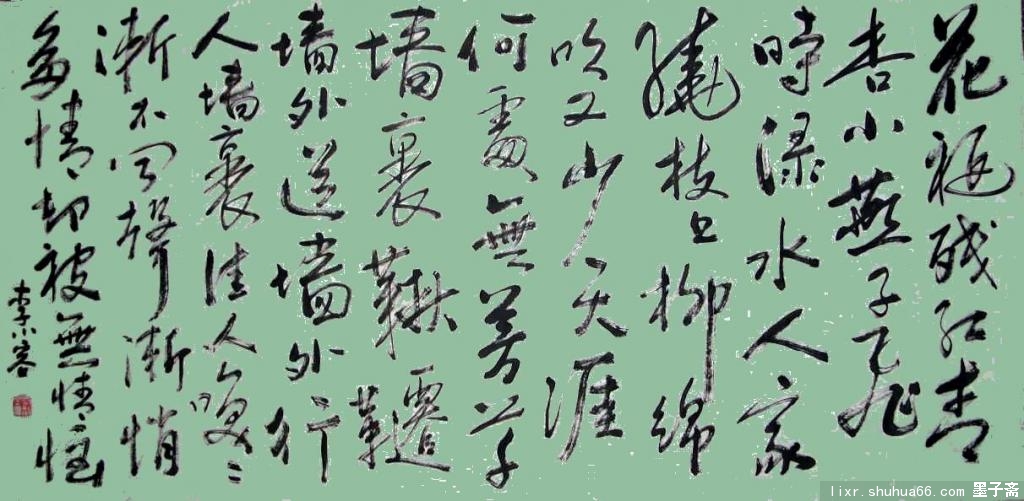 花褪残红青
杏小燕子飞
時渌水人家
繞枝上柳绵
吹又少天涯
何處無芳草
墙裏鞦韆
墙外道墙外行
人墙裏佳人咲々
渐不闻聲渐悄
多情却被無情恼
lixr.shuhua66.com 墨子斋